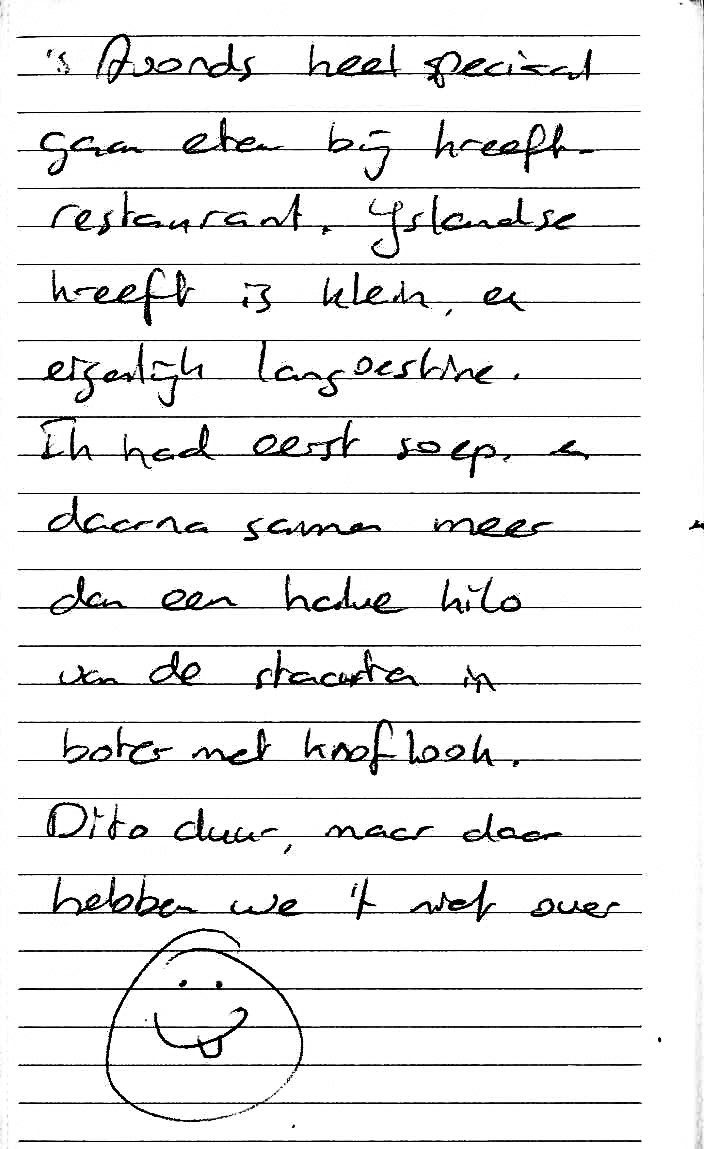 's Avonds heel speciaal
gaan eten bij kreeft-
restaurant. IJslandse
kreeft is klein, en
eigenlijk langoestine.
Ik had eerst soep, en
daarna samen meer
dan een halve kilo
van de staarten in
boter met knoflook.
Dito duur, maar daar
hebben we 't niet over